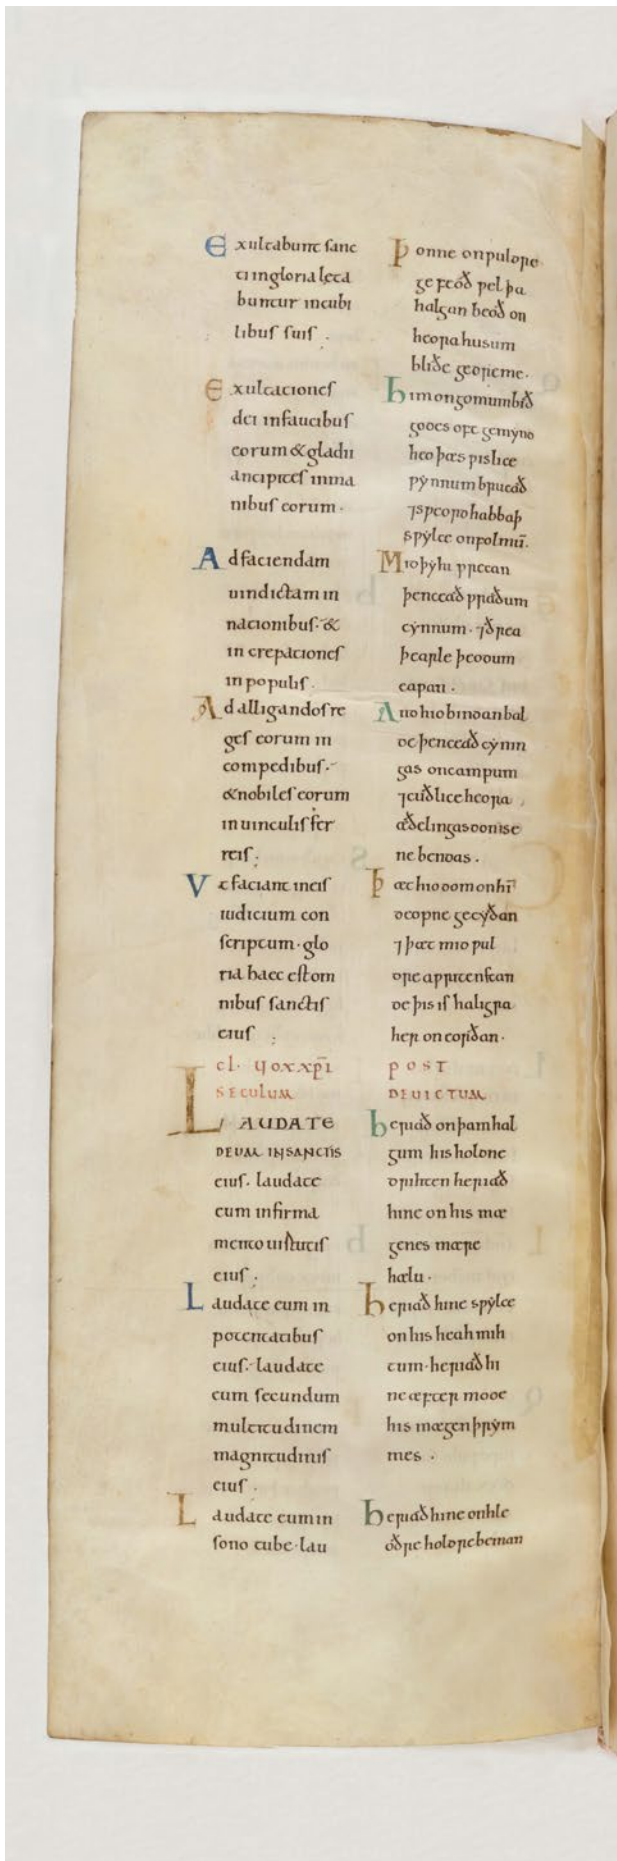 Exultabunt sanc
ti in gloria lęta
buntur in cubi
libus suis.
Exultationes
dei in faucibus
eorum & gladii
ancipites in ma
nibus eorum.
Ad faciendam
uindictam in
nationibus. &
increpationes
in populis.
Ad alligandos re
ges eorum in
compedibus.
& nobiles eorum
in uinculis fer
reis.
Vt faciant in eis
iudicium con
scriptum. glo
ria haec est om
nibus sanctis
eius
SECULUM
LAUDATE
DEUM IN SANCTIS
eius. laudate
eum in firma
mento uirtutis
eius.
Laudate eum in
potentatibus
eius. laudate
eum secundum
multitudinem
magnitudinis
eius.
Laudate eum in
sono tube. lau
Þonne on ƿuldre
gefeoð ƿel þa
halgan beoð on
heora husum
bliðe georne.
Him on gomum bið
godes oft gemynd
heo þæs ƿislice
ƿynnum brucað
⁊ sƿeord habbaþ
sƿylce on folmū.
Mid þy hi ƿrecan
þenceað ƿraðum
cynnum. ⁊ ðrea
þearle þeodum
eaƿan.
And hio bindan bal
de þenceað cynin
gas on campum
⁊ cuðlice heora
æðelingas don ise
ne bendas.
Þæt hio dom on hī
deopne gecyðan
⁊ þæt mid ƿul
dre aƿriten stan
de þis is haligra
her on eorðan.
POST
DEUICTUM
Heriað on þam hal
gum his holdne
drihten heriað
hine on his mæ
genes mære
hælu.
Heriað hine sƿylce
on his heah mih
tum. heriað hi
ne æfter mode
his mægen þrym
mes.
Heriað hine on hle
oðre holdre beman